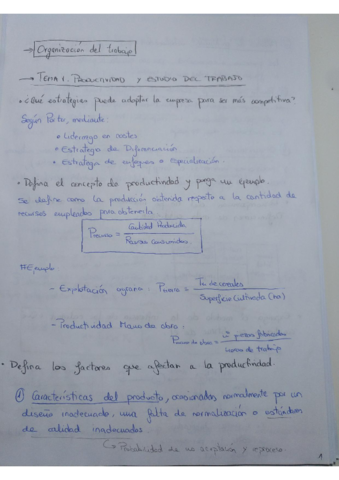 → Organización del trabajo
→ TEMA 1. PRODUCTIVIDAD Y ESTUDIO DEL TRABAJO
• ¿Qué estrategias puede adoptar la empresa para ser más competitiva?
Según Porter, mediante:
* Liderazgo en costes
* Estrategia de Diferenciación.
* Estrategia de enfoque o especialización.
• Defina el concepto de productividad y ponga un ejemplo.
Se define como la producción obtenida respecto a la cantidad de
recursos empleados para obtenerla
= Cantidad Producida
Recursos Consumidos
# Ejemplo
- Explotación : = Tn de cereales
Superficie Cultivada (ha)
- Productividad Mano de obra: P mano de obra = nº piezas fabricadas
horas de trabajo
• Defina los factores que afectan a la productividad.
① Características del producto, ocasionadas normalmente por un
diseño inadecuado, una falta de normalización o estándares
de calidad inadecuados.
↳ Probabilidad de no aceptación y
1